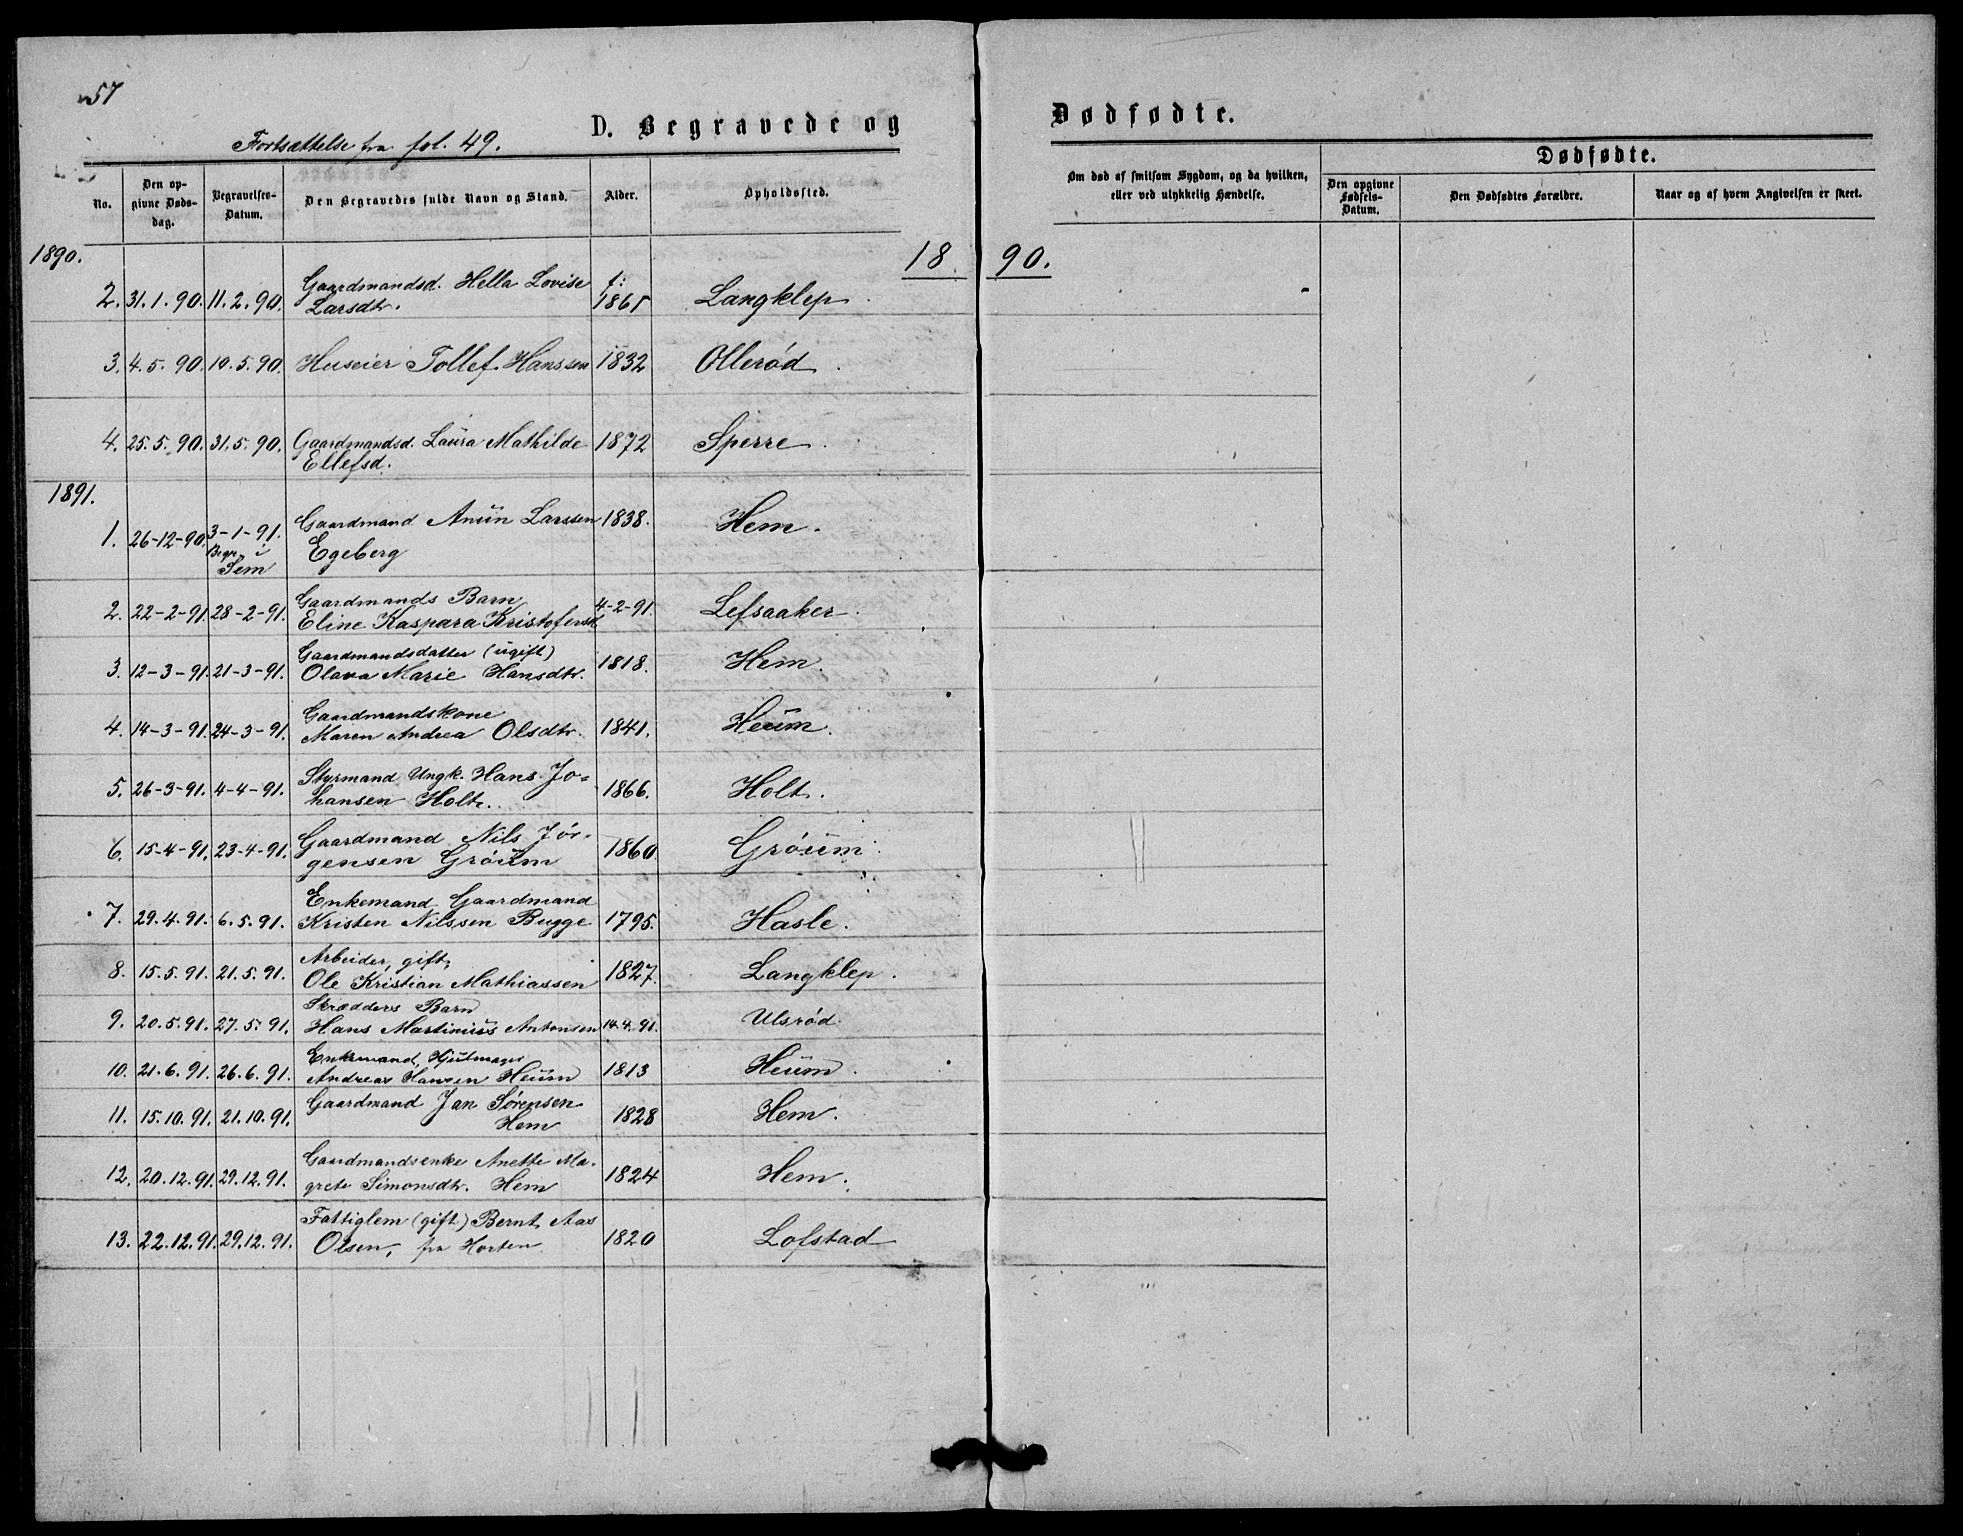 57
Fortsættelse fra fol. 49.
D. Begravede og Dødfødte.
No.
Den opgivne Dødsdag.
Begravelses-Datum.
Den Begravedes fulde Navn og Stand.
Alder.
Opholdssted.
Om død af smitsom Sygdom, og da hvilken, eller ved ulykkelig Hændelse.
Dødfødte.
Den opgivne Fødsels-Datum.
Den Dødfødtes Forældre.
Naar og af hvem Angivelsen er skeet.
1890.
18 90.
2. 31. 1. 90. 11. 2. 90. Gaardmandsd. Hella Lovise Larsdtr. f: 1865 Langklep
3. 4. 5. 90. 10. 5. 90. Huseier Tollef Hanssen 1832 Ollerød
4. 25. 5. 90. 31. 5. 90. Gaardmandsd. Laura Mathilde Ellefsd. 1872 Sperre
1891.
1. 26-12-90. 3-1-91. Begr. i Sem Gaardmand Anun Larssen Egeberg 1838. Hem.
2. 22-2-91. 28-2-91. Gaardmands Barn Eline Kaspara Kristofersd. 4-2-91. Lefsaaker
3. 12-3-91. 21-3-91. Gaardmandsdatter (ugift) Olava Marie Hansdtr. 1818. Hem.
4. 14-3-91. 24-3-91. Gaardmandskone Maren Andrea Olsdtr. 1841. Heum.
5. 26-3-91. 4-4-91. Styrmand Ungk. Hans Jo=
hansen Holt. 1866. Holt.
6. 15-4-91. 23-4-91. Gaardmand Nils Jør-
gensen Grøum 1860 Grøum
7. 29. 4. 91. 6. 5. 91. Enkemand Gaardmand Kristen Nilssen Bugge 1795. Hasle.
8. 15. 5. 91. 21. 5. 91. Arbeider, gift, Ole Kristian Mathiassen 1827. Langklep.
9. 20. 5. 91. 27. 5. 91. Skrædders Barn Hans Martinius Antonsen 14. 4. 91. Ulsrød.
10. 21. 6. 91. 26. 6. 91. Enkemand, Hjulmager Andreas Hansen Heum 1813 Heum.
11. 15. 10. 91. 21. 10. 91. Gaardmand Jan Sørensen Hem 1828 Hem.
12. 20. 12. 91. 29. 12. 91. Gaardmandsenke Anette Ma-
grete Simonsdtr. Hem 1824 Hem.
13. 22. 12. 91. 29. 12. 91. Fattiglem (gift) Bernt Aas Olsen, fra Horten. 1820 Lofstad